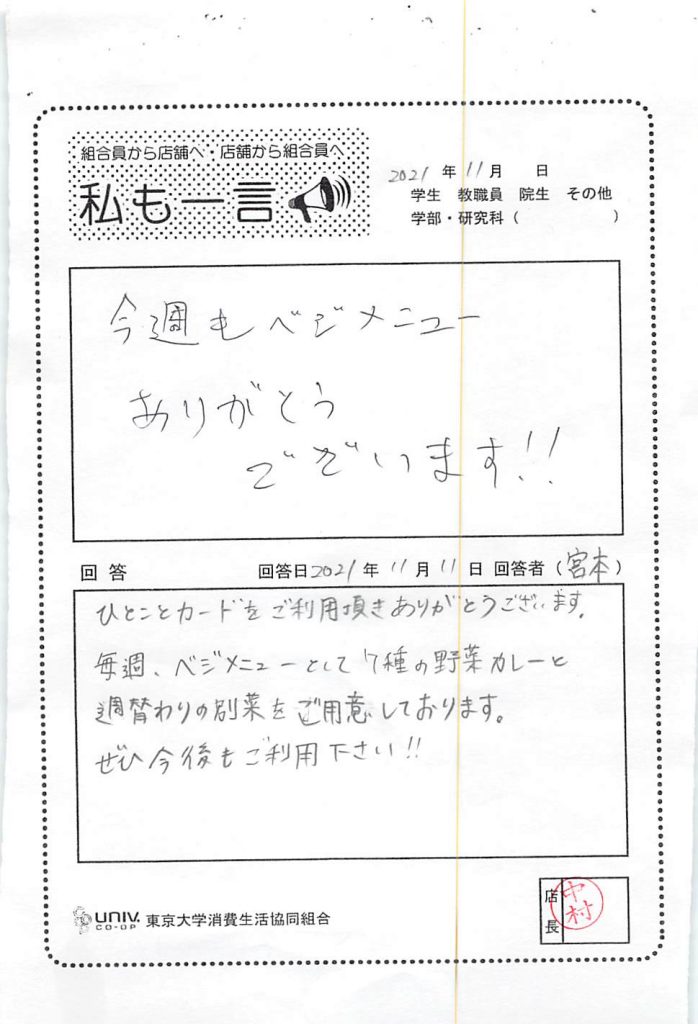 組合員から店舗へ・店舗から組合員へ
私も一言
2021年11月 日
学生 教職員 院生 その他
学部・研究科( )
今週もベジメニュー
ありがとう
ございます!!
回答 回答日2021年11月11日 回答者(宮本)
ひとことカードをご利用頂きありがとうございます。
毎週、ベジメニューとして7種の野菜カレーと
週替わりの別菜をご用意しております。
ぜひ今後もご利用下さい!!
UNIV. CO-OP 東京大学消費生活協同組合
店長
中村